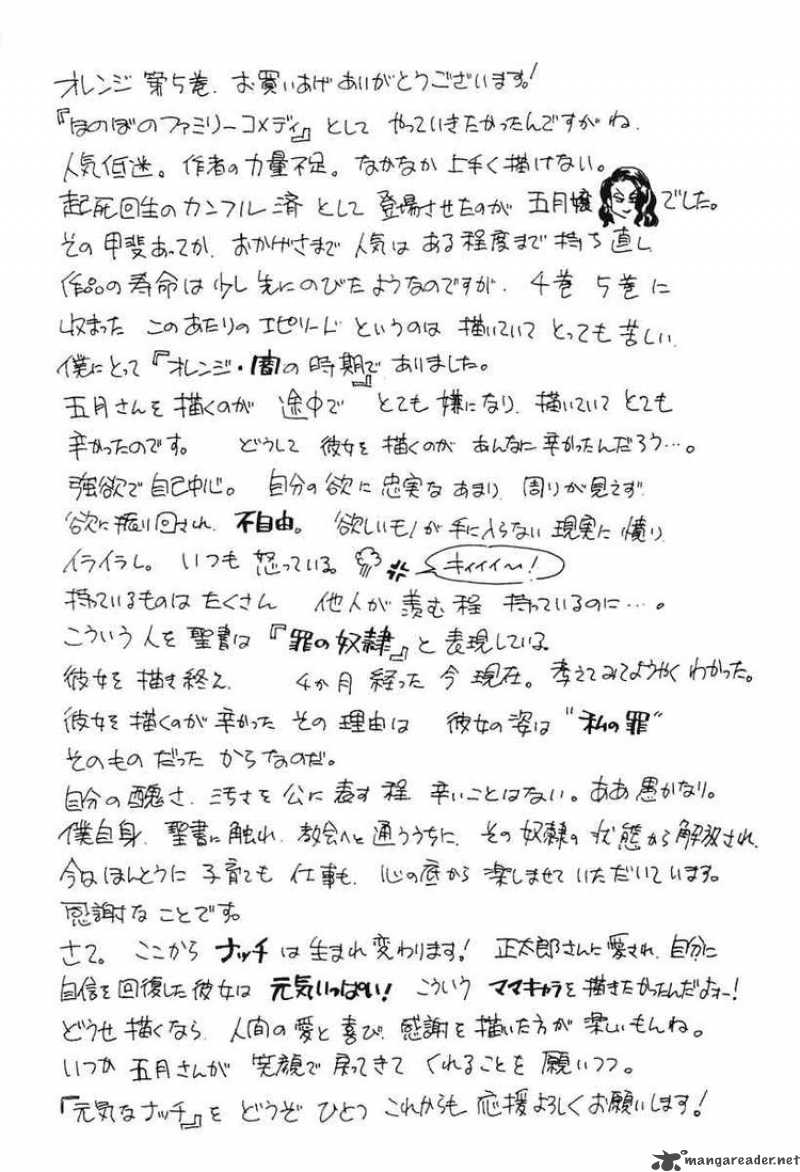 オレンジ 第5巻、お買いあげありがとうございます!
『ほのぼのファミリーコメディ』として やっていきたかったんですがね、
人気低迷。作者の力量不足。なかなか上手く描けない。
起死回生のカンフル済として 登場させたのが 五月嬢でした。
その甲斐あってか、おかげさまで 人気は ある程度まで 持ち直し、
作品の寿命は少し先にのびたようなのですが、4巻 5巻に
収まった このあたりのエピソード というのは 描いていて とっても 苦しい、
僕にとって『オレンジ・闇の時期』で ありました。
五月さんを 描くのが 途中で とても 嫌になり、描いていて とても
辛かったのです。 どうして 彼女を 描くのが あんなに 辛かったんだろう…。
強欲で自己中心。 自分の欲に 忠実な あまり、周りが見えず
欲に振り回され、不自由。 欲しいモノが 手に入らない 現実に 憤り、
イライラし。いつも 怒っている。 キィイイ〜!
持っているものは たくさん 他人が 羨む程 持っているのに…。
こういう 人を 聖書は『罪の奴隷』と 表現している。
彼女を 描き終え、 4か月 経った 今 現在。考えてみてようやく わかった。
彼女を 描くのが 辛かった その 理由は 彼女の姿は “私の罪”
そのもの だった からなのだ。
自分の醜さ、汚さを 公に 表す 程 辛いことはない。ああ 愚かなり。
僕自身、聖書に触れ、教会へと 通ううちに、その 奴隷の 状態から 解放され、
今はほんとうに 子育ても 仕事も、心の底から 楽しませて いただいています。
感謝な ことです。
さて。 ここから ナッチ は 生まれ変わります! 正太郎さんに愛され、自分に
自信を回復した彼女は 元気いっぱい! こういう ママキャラを 描きたかったんだよォー!
どうせ 描くなら、人間の愛と喜び、感謝を 描いた方が 楽しいもんね。
いつか 五月さんが 笑顔で 戻ってきて くれることを 願いつつ。
『元気なナッチ』を どうぞ ひとつ これからも 応援よろしくお願いします!
mangareader.net